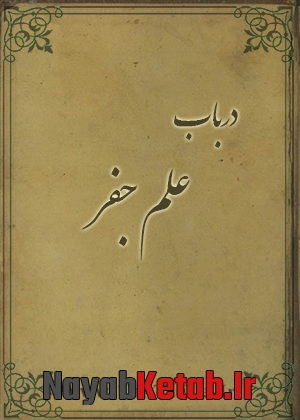 درباب
علم جفر
NayabKetab.Ir